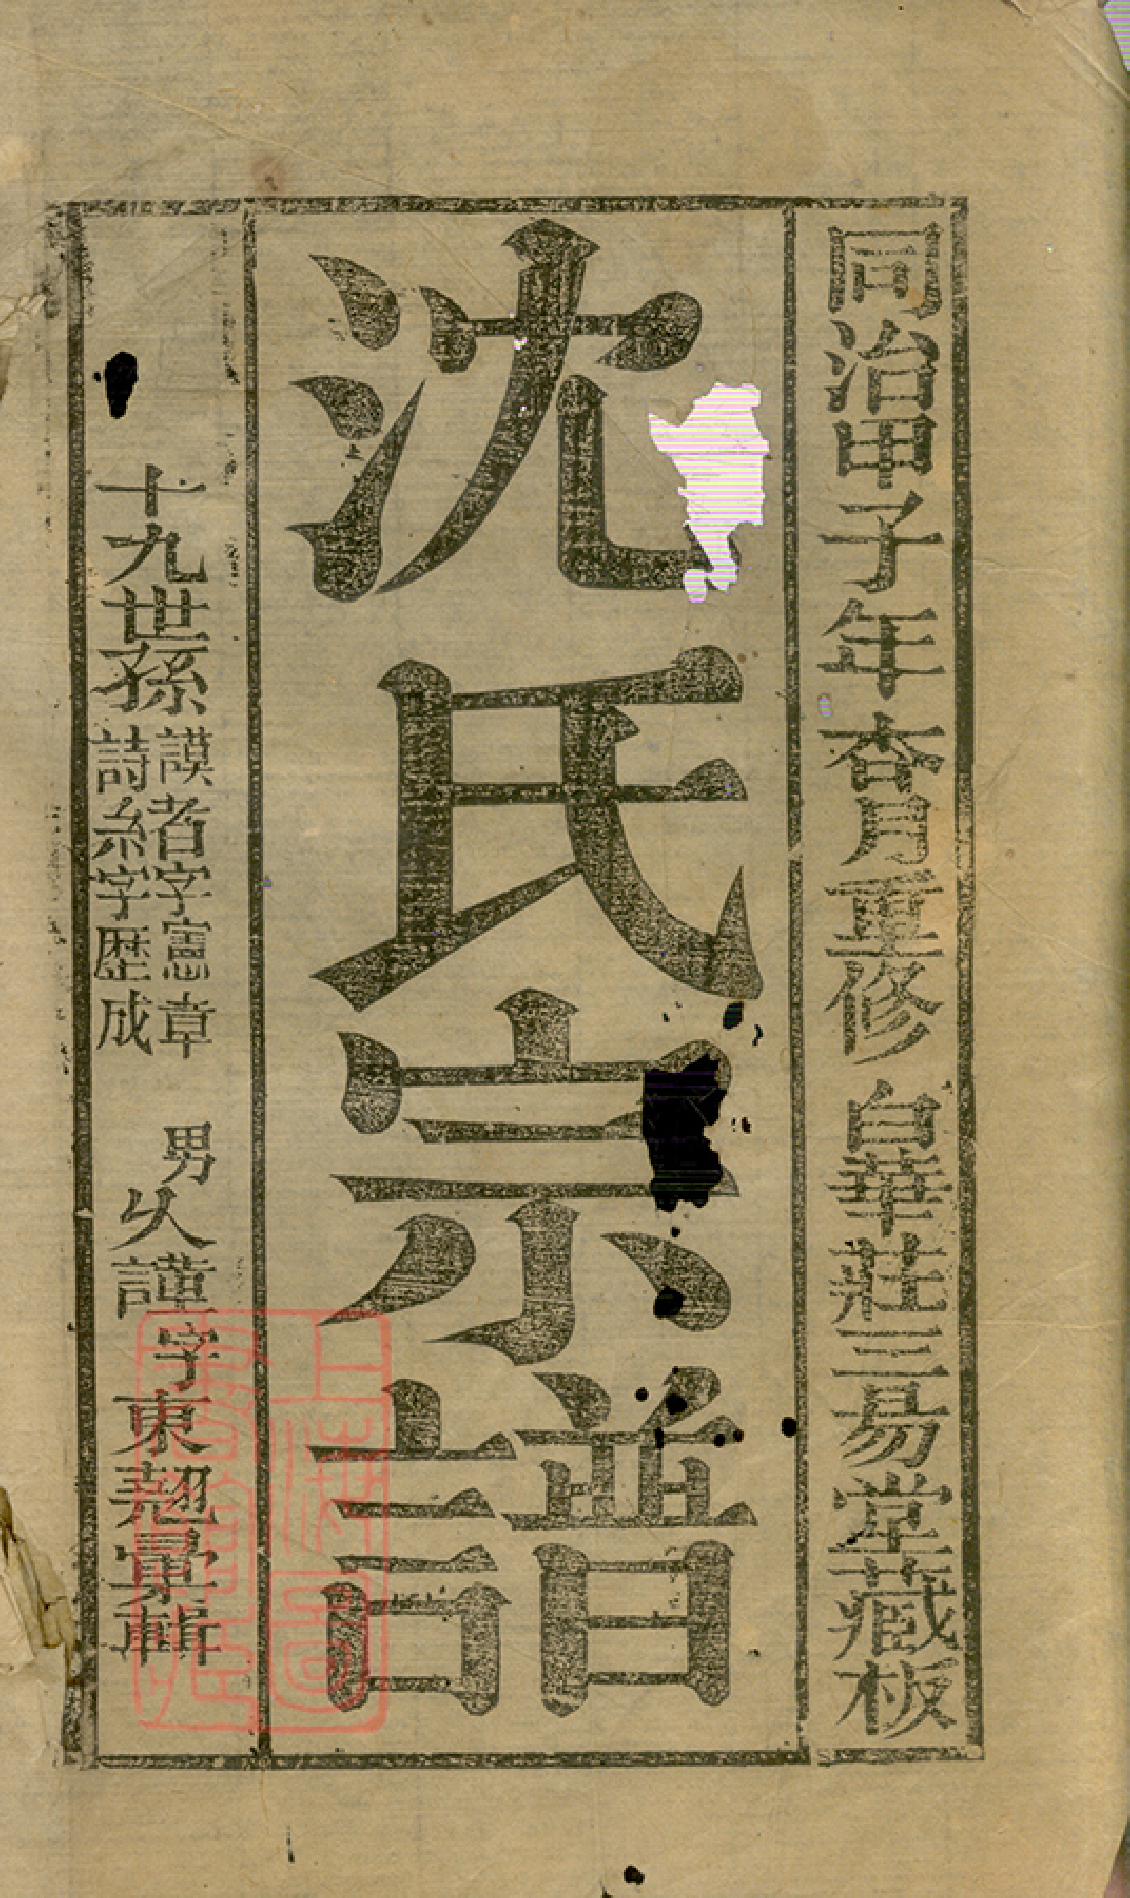 同治甲子年杏月重修 白華莊三易堂藏板
沈氏宗譜
十九世孫
謨者字憲章
詩糸字歷成
男
乆謹字東翹彙輯